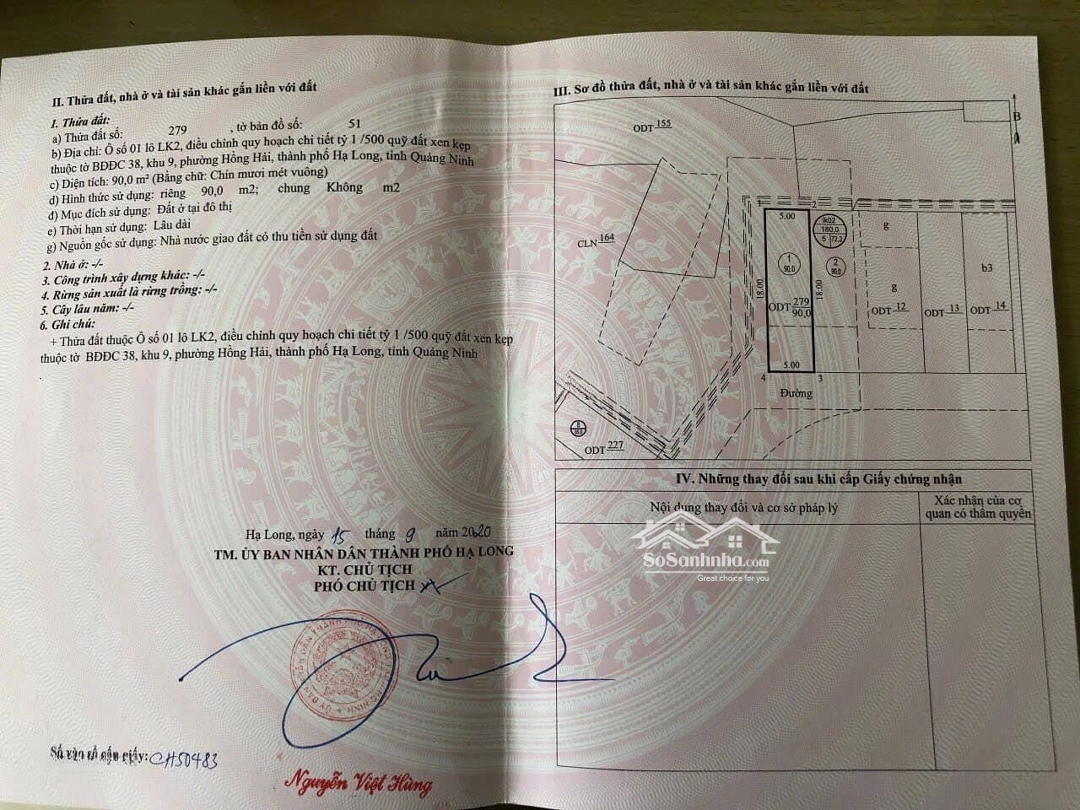 II. Thửa đất, nhà ở và tài sản khác gắn liền với đất
1. Thửa đất:
a) Thửa đất số: 279 , tờ bản đồ số: 51
b) Địa chỉ: Ô số 01 lô LK2, điều chỉnh quy hoạch chi tiết tỷ 1 /500 quỹ đất xen kẹp
thuộc tờ BĐĐC 38, khu 9, phường Hồng Hải, thành phố Hạ Long, tỉnh Quảng Ninh
c) Diện tích: 90,0 m² (Bằng chữ: Chín mươi mét vuông)
d) Hình thức sử dụng: riêng 90,0 m2; chung Không m2
đ) Mục đích sử dụng: Đất ở tại đô thị
e) Thời hạn sử dụng: Lâu dài
g) Nguồn gốc sử dụng: Nhà nước giao đất có thu tiền sử dụng đất
2. Nhà ở: -/-
3. Công trình xây dựng khác: -/-
4. Rừng sản xuất là rừng trồng: -/-
5. Cây lâu năm: -/-
6. Ghi chú:
+ Thửa đất thuộc Ô số 01 lô LK2, điều chỉnh quy hoạch chi tiết tỷ 1 /500 quỹ đất xen kẹp
thuộc tờ BĐĐC 38, khu 9, phường Hồng Hải, thành phố Hạ Long, tỉnh Quảng Ninh
Hạ Long, ngày 15 tháng 9 năm 2020
TM. ỦY BAN NHÂN DÂN THÀNH PHỐ HẠ LONG
KT. CHỦ TỊCH
PHÓ CHỦ TỊCH
Nguyễn Việt Hùng
Số vào sổ cấp giấy: CH50483
III. Sơ đồ thửa đất, nhà ở và tài sản khác gắn liền với đất
B
ODT 155
CLN 164
1
2
5.00
lk02
180,0
5 72,2
1
90,0
2
90,0
18.00
18.00
ODT 279
90,0
5.00
4
3
Đường
g
g
b3
ODT 12
ODT 13
ODT 14
ODT 227
IV. Những thay đổi sau khi cấp Giấy chứng nhận
Nội dung thay đổi và cơ sở pháp lý
Xác nhận của cơ
quan có thẩm quyền
SoSanhnha.com
Great choice for you